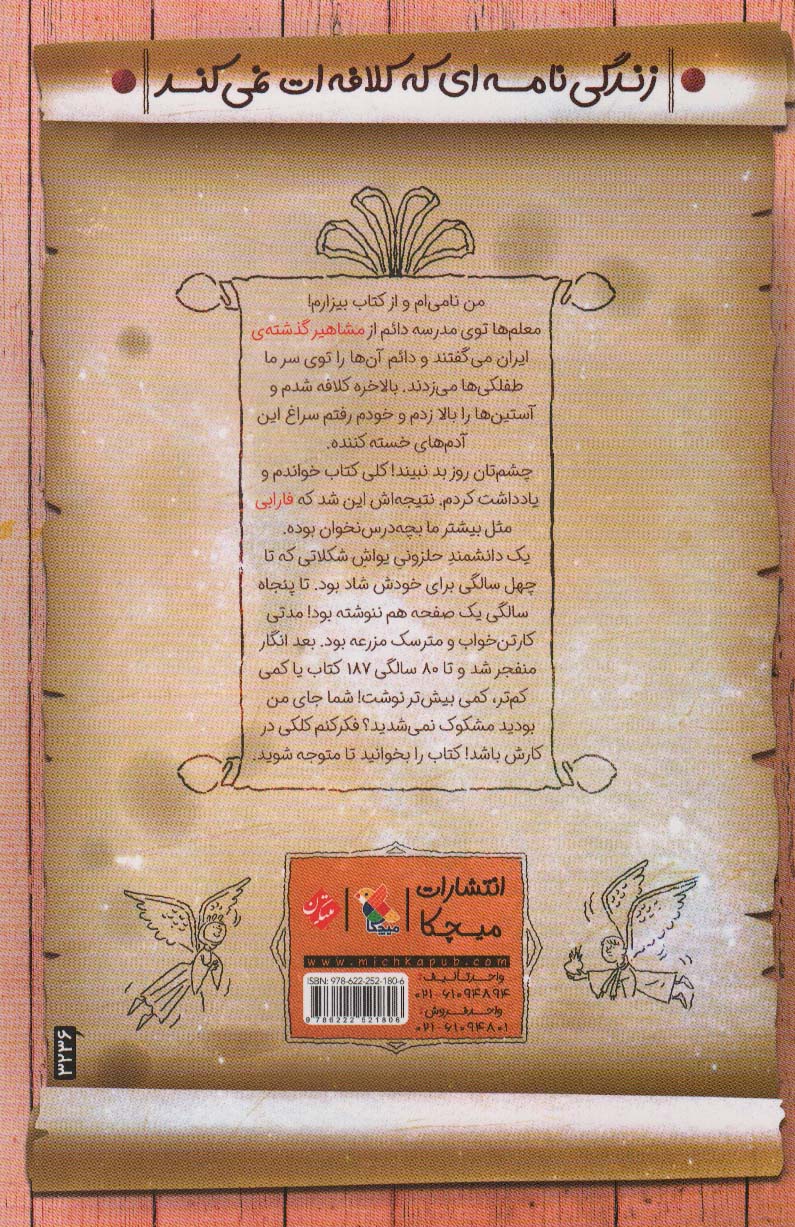 زندگی نامه ای که کلافه ات نمی کند
من نامی‌ام و از کتاب بیزارم!
معلم‌ها توی مدرسه دائم از مشاهیر گذشته‌ی
ایران می‌گفتند و دائم آن‌ها را توی سر ما
طفلکی‌ها می‌زدند. بالاخره کلافه شدم و
آستین‌ها را بالا زدم و خودم رفتم سراغ این
آدم‌های خسته کننده.
چشم‌تان روز بد نبیند! کلی کتاب خواندم و
یادداشت کردم. نتیجه‌اش این شد که فارابی
مثل بیشتر ما بچه‌درس‌نخوان بوده.
یک دانشمندِ حلزونی یواشِ شکلاتی که تا
چهل سالگی برای خودش شاد بود. تا پنجاه
سالگی یک صفحه هم ننوشته بود! مدتی
کارتن‌خواب و مترسک مزرعه بود. بعد انگار
منفجر شد و تا ۸۰ سالگی ۱۸۷ کتاب یا کمی
کم‌تر، کمی بیش‌تر نوشت! شما جای من
بودید مشکوک نمی‌شدید؟ فکرکنم کلکی در
کارش باشد! کتاب را بخوانید تا متوجه شوید.
انتشارات
میچکا
میچکا
مبتکران
www.michkapub.com
واحد تألیف:
۰۲۱-۶۱۰۹۴۸۹۴
واحد فروش:
۰۲۱-۶۱۰۹۴۸۰۱
ISBN: 978-622-252-180-6
9 786222 521806
۳۲۳۶